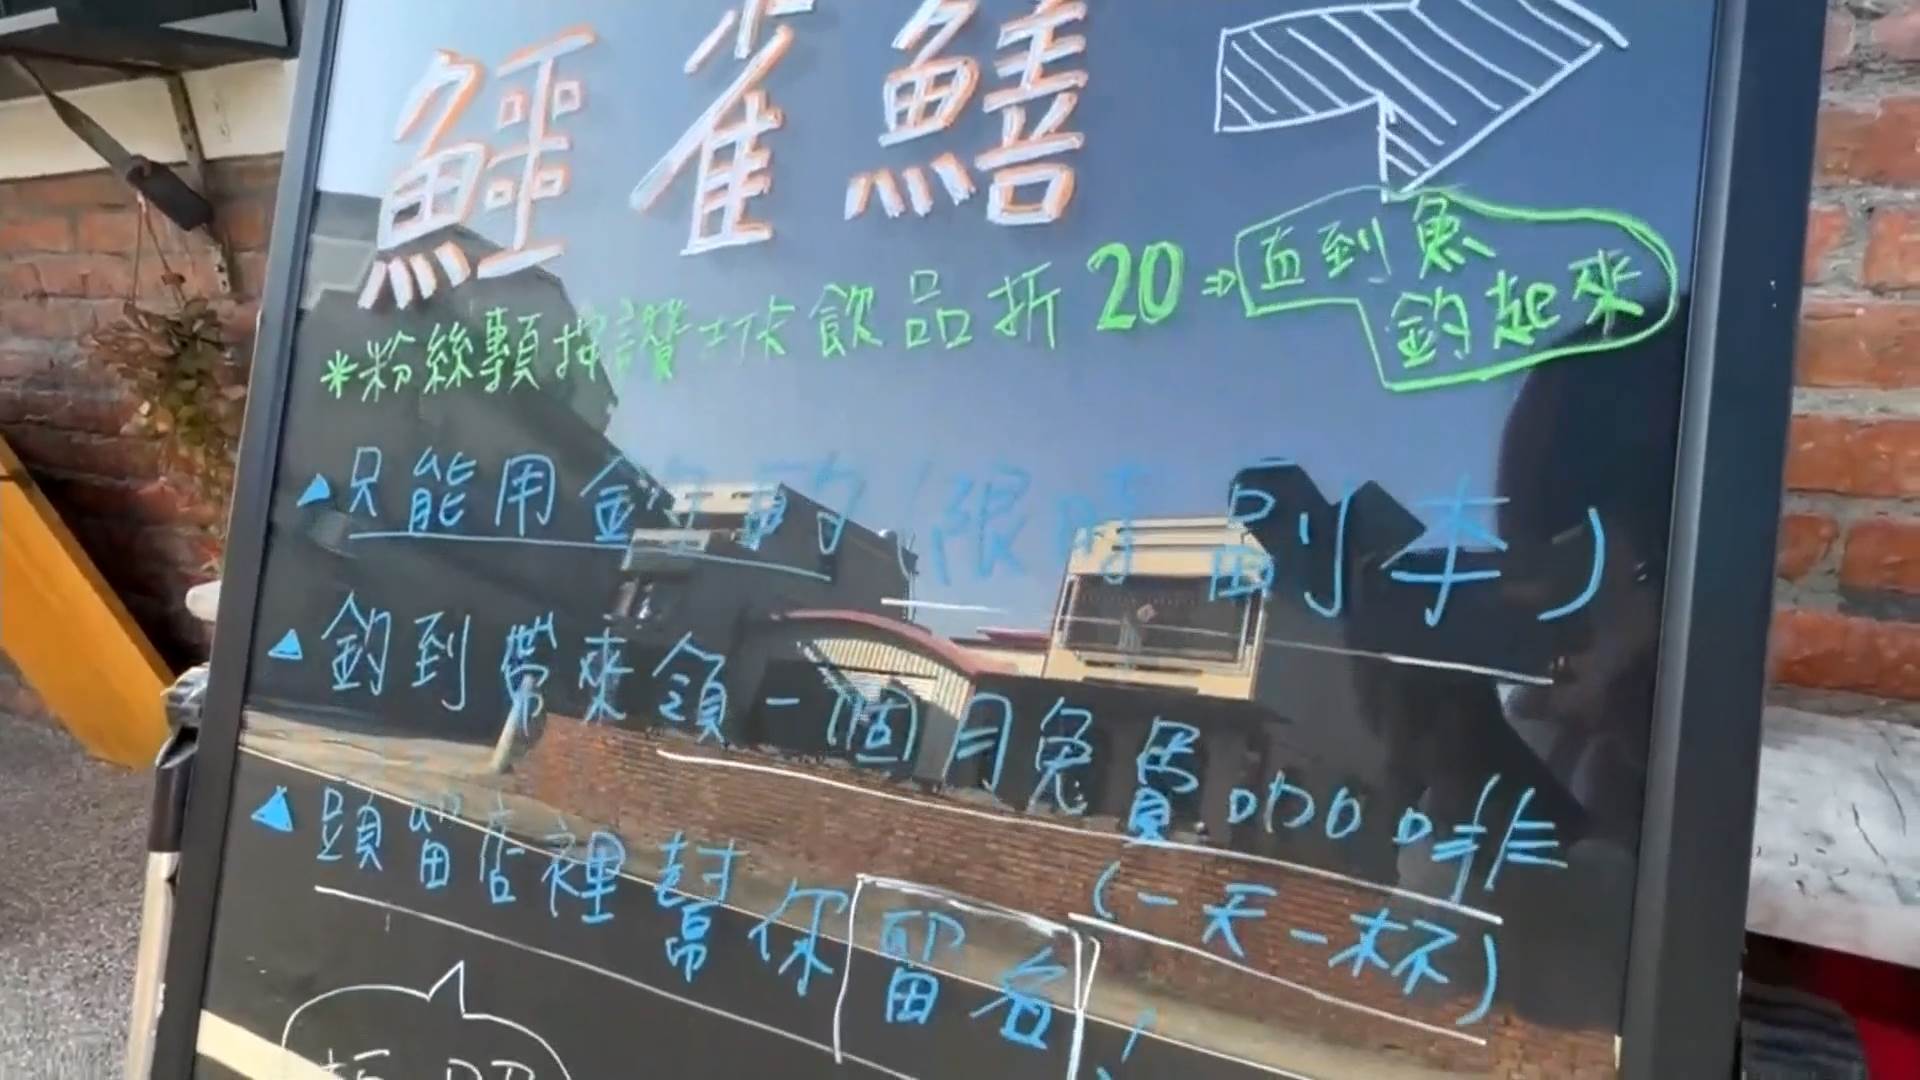 鱷雀鱔
*粉絲專頁按讚 飲品折20⇒
直到魚
釣起來
▲只能用釣的(限時副本)
▲釣到帶來領一個月免費咖啡
(一天一杯)
▲頭留店裡幫你留名!